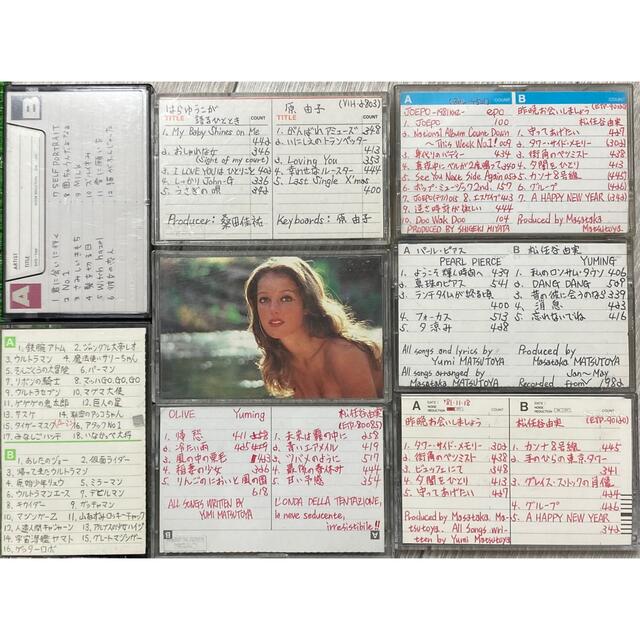 B
TITLE
ARTIST
1. 君に会いに行く
2. No.1
3. さみしいきもち
4. 髪を切る日
5. With hazel
7. SELF PORTRAIT
9. MILK
A
A
1. 鉄腕アトム 2. ジャングル大帝レオ
3. ウルトラマン 4. 魔法使いサリーちゃん
5. そんごくうの大冒険 6. パーマン
7. リボンの騎士 8. マッハGO,GO,GO
9. ウルトラセブン 10. マグマ大使
11. ゲゲゲの鬼太郎 12. 巨人の星
13. サスケ 14. 秘密のアッコちゃん
15. タイガーマスク 16. アタックNo.1
17. みなしごハッチ 18. いなかっぺ大将
B
1. あしたのジョー 2. 仮面ライダー
3. 帰って来たウルトラマン
4. 原始少年リュウ 5. ミラーマン
6. ウルトラマンエース 7. デビルマン
8. キカイダー 9. ガッチャマン
10. マジンガーZ 11. 山ねずみロッキーチャック
12. 人造人間キャシャーン 13. アルプスの少女ハイジ
14. 宇宙戦艦ヤマト 15. グレートマジンガー
16. ゲッターロボ
はらゆうこが
語るひととき
TITLE COUNT
1. My Baby Shines on Me 446
2. おしゃれな女
(Sight of my court) 346
3. I LOVE YOUはひとりごと
4. しゃがり John-G 336
5. うさぎの唄
Producer: 桑田佳祐
原 由子 (VIH-2803)
TITLE COUNT
1. がんばれアミューズ 348
2. いにしえのトランペッター 413
3. Loving You 353
4. 幸せなルースター 444
5. Last Single X'mas 400
Keyboards: 原 由子
OLIVE Yuming 松任谷由実
(ETP-80085)
1. 帰愁 411
2. 冷たい雨
3. 風の中の栗毛
4. 稲妻の少女 326
5. りんごのにおいと風の国
618
ALL SONGS WRITTEN BY
YUMI MATSUTOYA
1. 未来は霧の中に 258
2. 青いエアメイル 419
3. ツバメのように 517
4. 最後の春休み 444
5. 甘い予感 354
L'ONDA DELLA TENTAZIONE,
le nove seducente,
irresistibile!!
A
B
A COUNT
JOEPO~1981KHz~ epo
1. JOEPO 100
2. National Album Count Down
~This Week No.1! 009
3. 身代りのバディー 439
4. 真夜中にベルが2度鳴って 340
5. See You Nexe Side Again 052
6. ポップ・ミュージック 2nd. 157
7. JOEPO
8. エスケイプ 413
9. 逆さ時計が欲しい 444
10. Doo Wak Doo 104
PRODUCED BY SHIGEKI MIYATA
B COUNT
昨晩お会いしましょう (ETP-90130)
松任谷由実
1. 守ってあげたい (427)
2. タワー・サイド・メモリー (302)
3. 街角のペシミスト (438)
4. 夕闇をひとり (413)
5. カンナ8号線 (445)
6. グループ (426)
7. A HAPPY NEW YEAR (342)
Produced by Masataka
Matsutoya.
A パール・ピアス
PEARL PIERCE
1. ようこそ輝く時間へ 439
2. 真珠のピアス 541
3. ランチタイムが終る頃
400
4. フォーカス 513
5. 夕涼み 428
All songs and lyrics by
Yumi MATSUTOYA
All songs arranged by
Masataka MATSUTOYA
B 松任谷由実
YUMING
1. 私のロンサム・タウン 406
2. DANG DANG 509
3. 昔の彼に会うのなら 339
4. 消息
5. 忘れないでね 416
Produced by
Masataka MATSUTOYA
Jan~May
Recorded from 1982
A
'81・11・18
NOISE REDUCTION
昨晩お会いしましょう
1. タワー・サイド・メモリー 302
2. 街角のペシミスト 438
3. ビュッフェにて 348
4. 夕闇をひとり 413
5. 守ってあげたい 427
Produced by Masataka Ma-
tsutoya. All Songs wri-
tten by Yumi Matsutoya
B
NOISE REDUCTION
松任谷由実 (ETP-90130)
1. カンナ8号線 445
2. 手のひらの東京タワー
341
3. グレイス・スリックの肖像
4. グループ 426
5. A HAPPY NEW YEAR
342